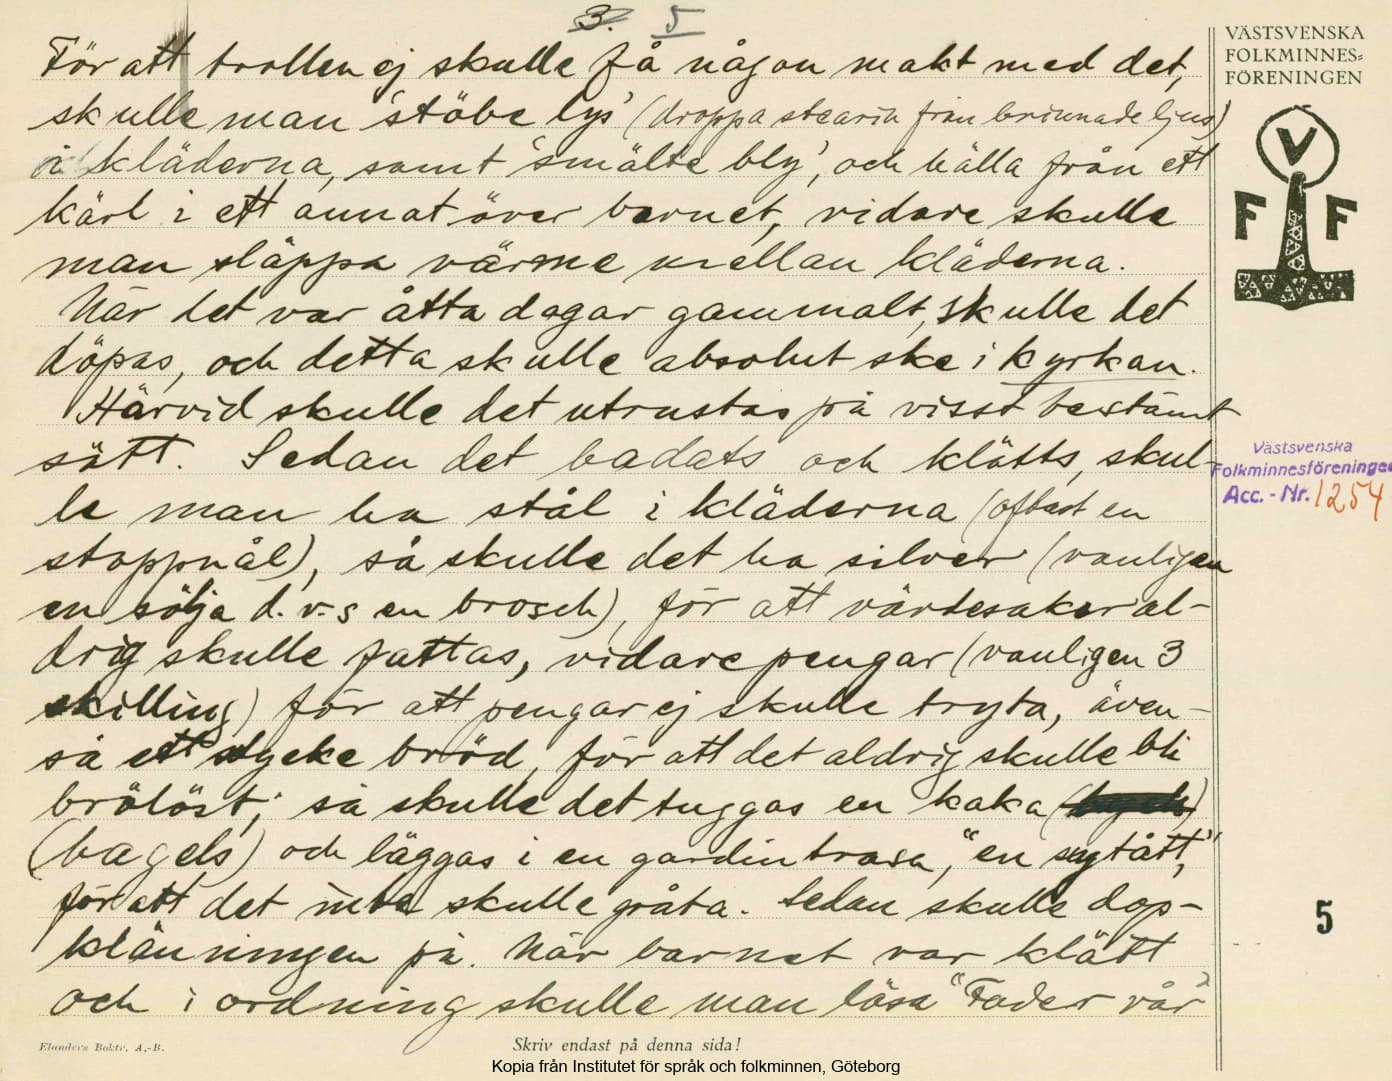 3. 5
För att trollen ej skulle få någon makt med det,
skulle man 'stöbe lys' (droppa stearin från brinnade ljus)
i kläderna, samt 'smälte bly', och hälla från ett
kärl i ett annat över barnet, vidare skulle
man släppa värme mellan kläderna.
När det var åtta dagar gammalt, skulle det
döpas, och detta skulle absolut ske i kyrkan.
Härvid skulle det utrustas på visst bestämt
sätt. Sedan det badats och klätts, skul-
le man ha stål i kläderna (oftast en
stoppnål), så skulle det ha silver (vanligen
en sölja d. v. s en brosch), för att värdesaker al-
drig skulle fattas, vidare pengar (vanligen 3
skilling) för att pengar ej skulle tryta, även-
så ett stycke bröd, för att det aldrig skulle bli
brölöst; så skulle det tuggas en kaka
(bagels) och läggas i en gardintrasa, "en sugtått",
för att det inte skulle gråta. Sedan skulle dop-
klänningen på. När barnet var klätt
och i ordning skulle man läsa "Fader vår"
VÄSTSVENSKA
FOLKMINNES=
FÖRENINGEN
V
F F
Västsvenska
Folkminnesföreningen
Acc. - Nr. 1254
5
Elanders Boktr. A.-B.
Skriv endast på denna sida!
Kopia från Institutet för språk och folkminnen, Göteborg